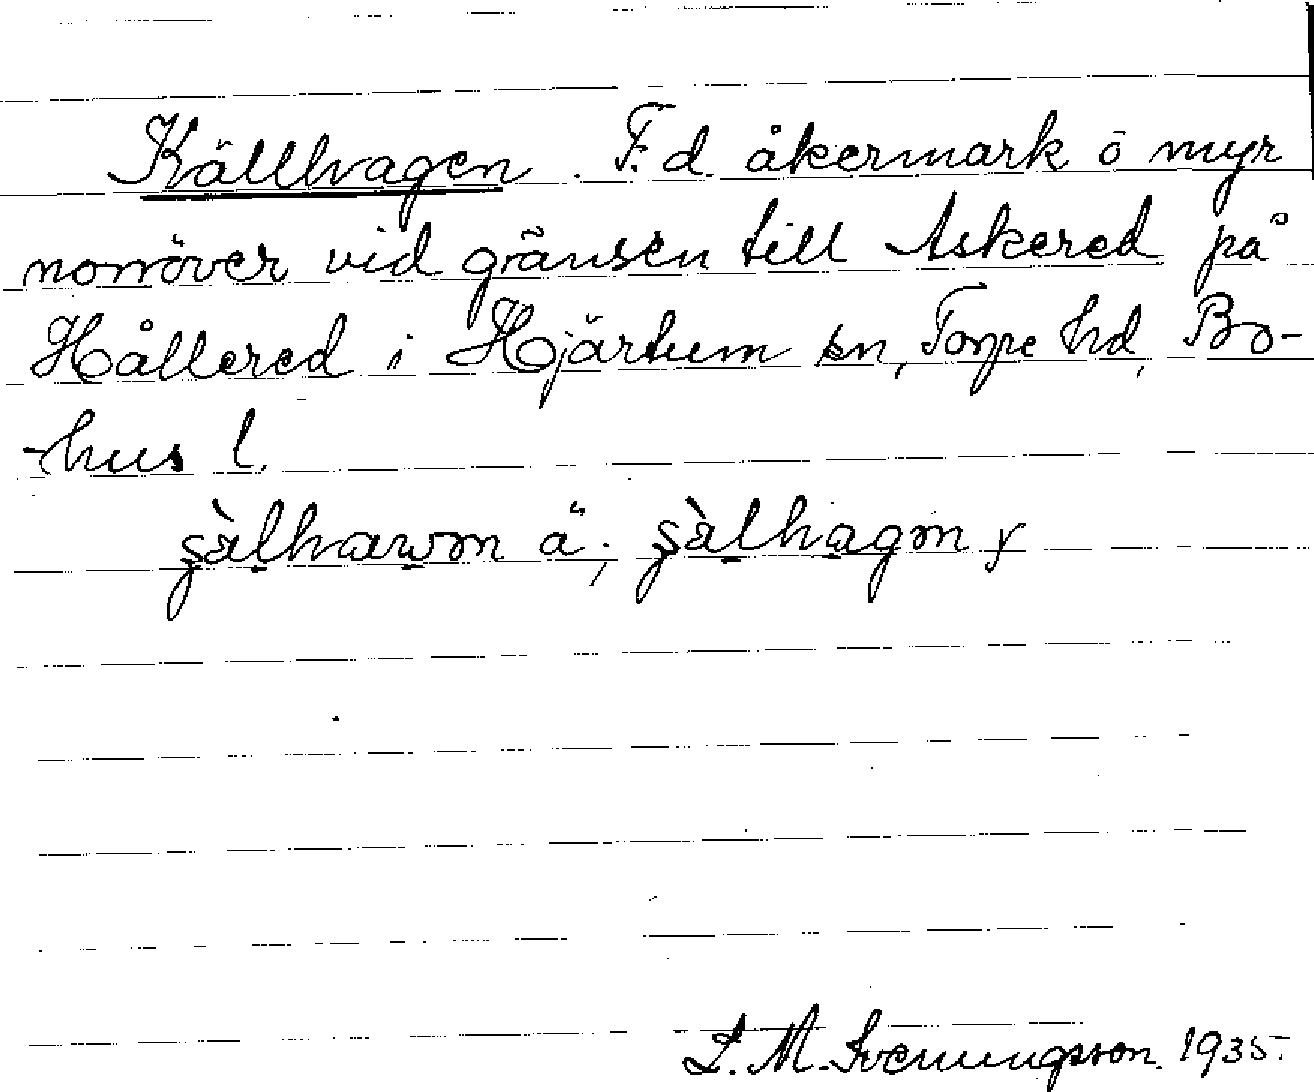 Källhagen. F.d. åkermark o myr
norröver vid gränsen till Askered på
Hållered i Hjärtum sn, Torpe hd, Bo-
-hus l.
ä; y
S. M. Svenungsson. 1935.